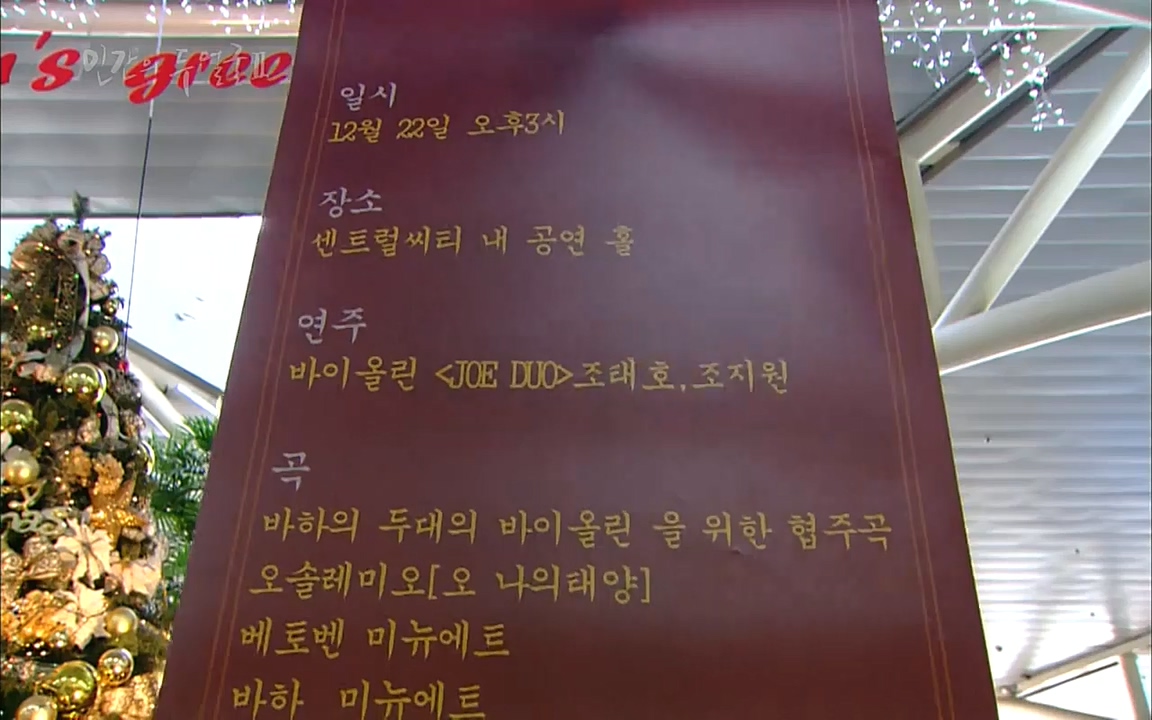 's
인간의 두얼굴 II
일시
12월 22일 오후3시
장소
센트럴씨티 내 공연 홀
연주
바이올린 <JOE DUO>조태호,조지원
곡
바하의 두대의 바이올린 을 위한 협주곡
오솔레미오[오 나의태양]
베토벤 미뉴에트
바하 미뉴에트